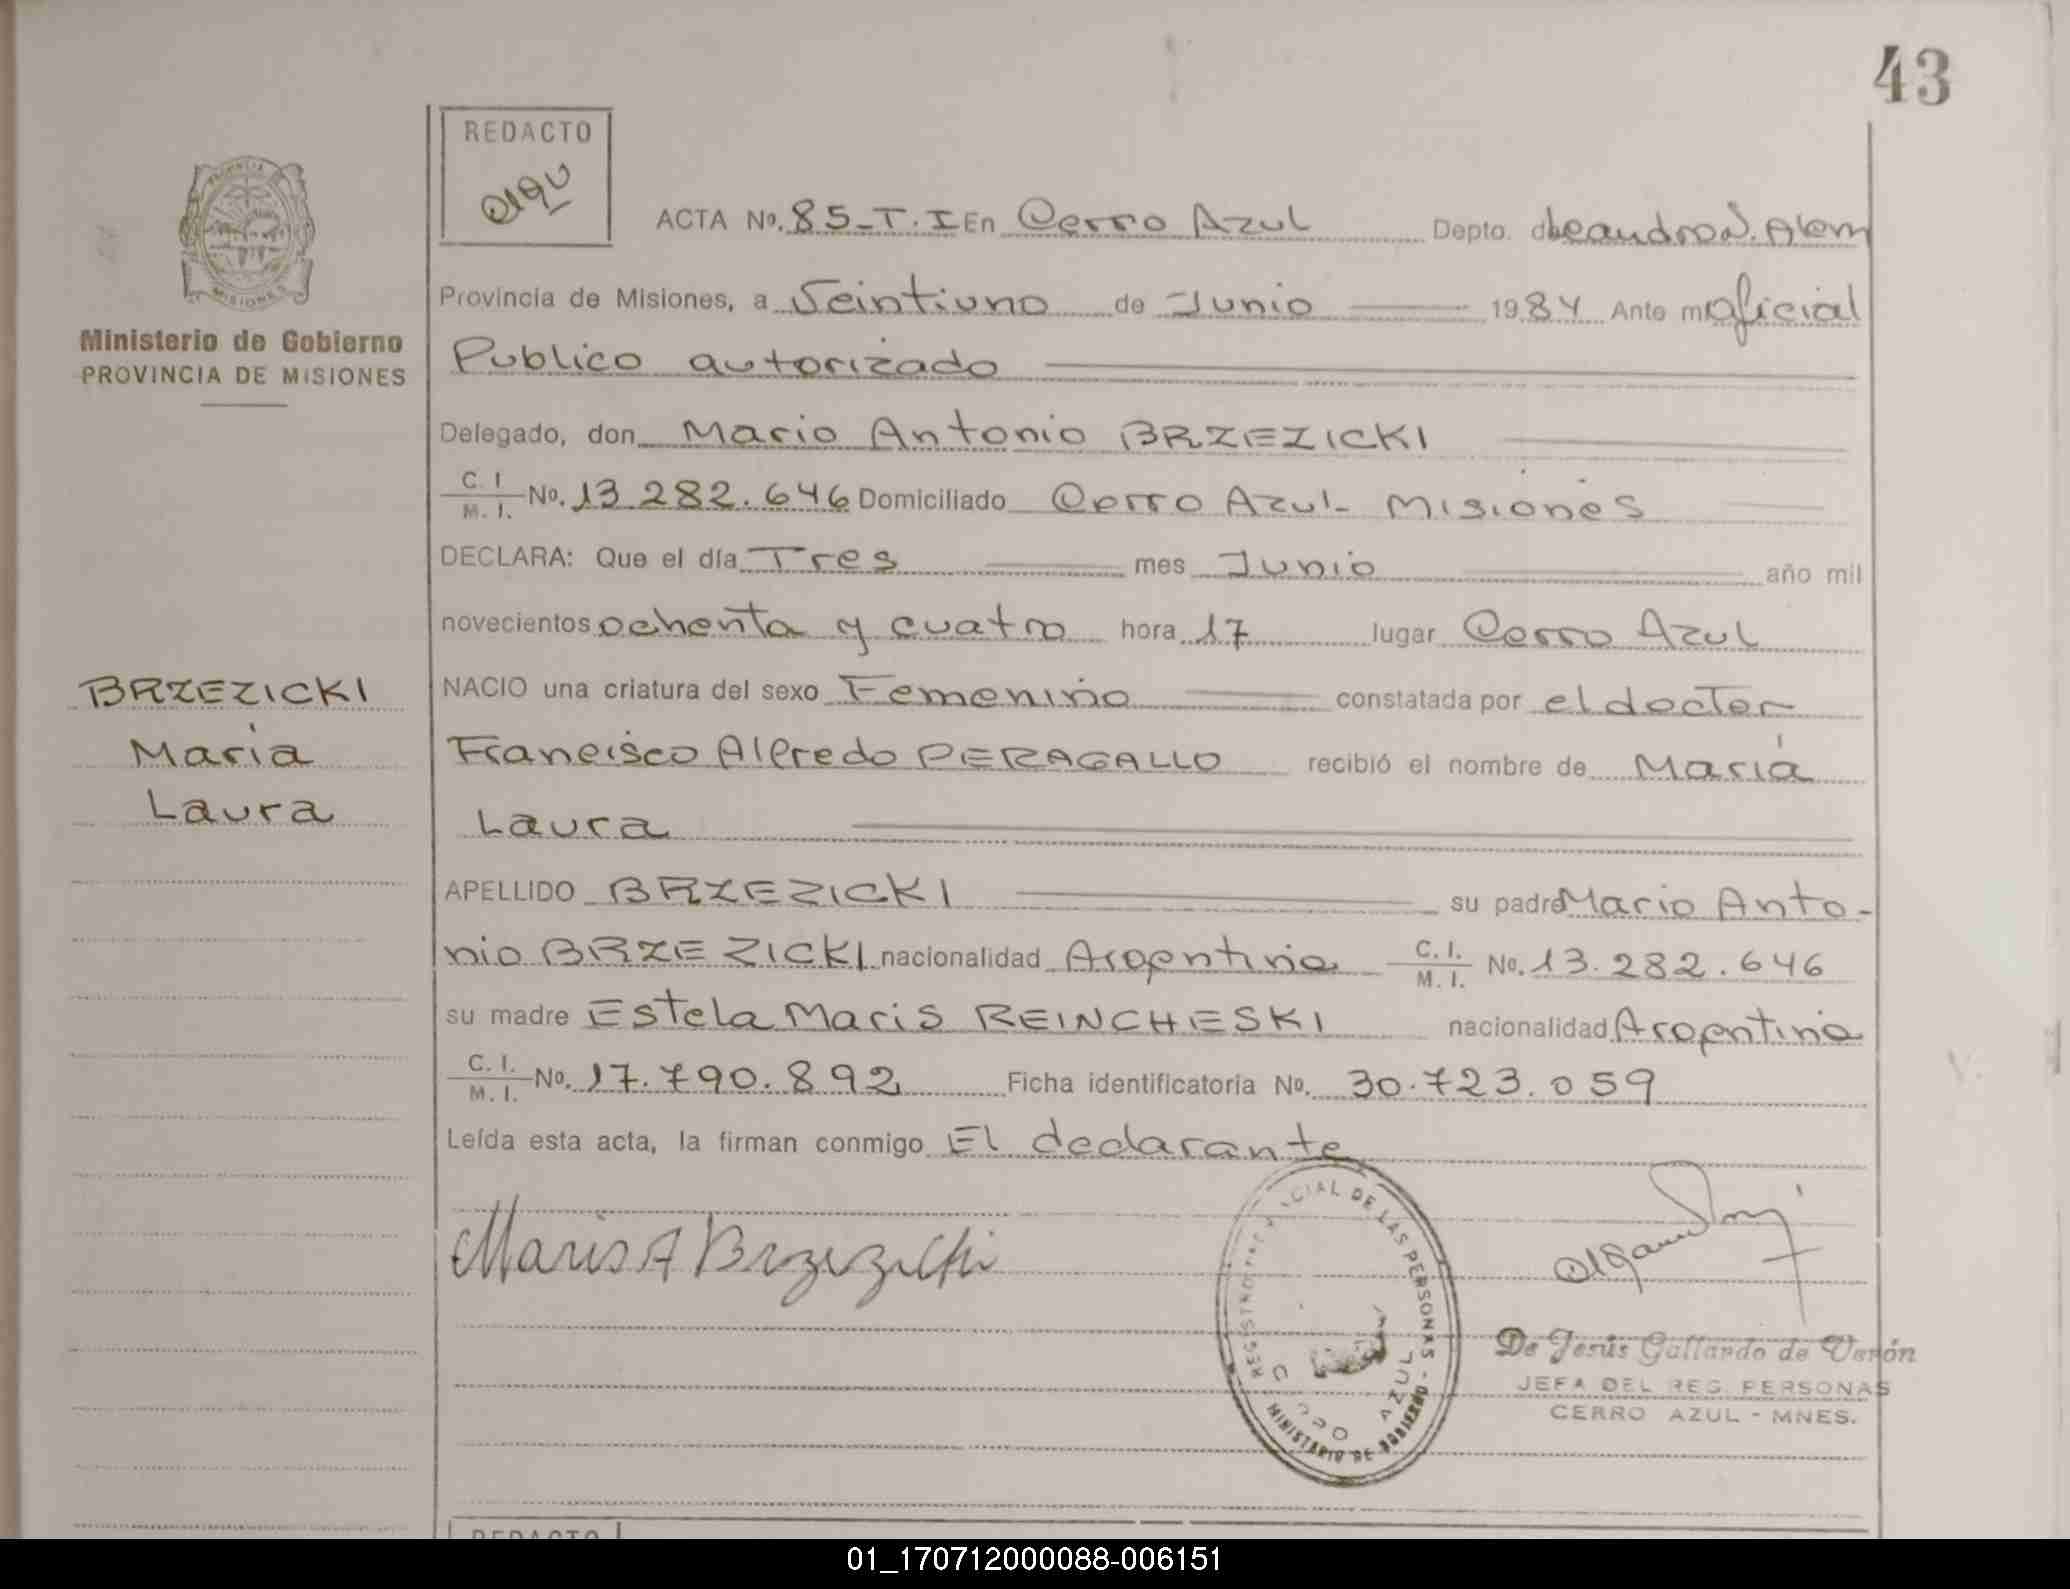 43
REDACTO
Olga
PROVINCIA
MISIONES
Ministerio de Gobierno
PROVINCIA DE MISIONES
ACTA No. 85-T.I En Cerro Azul Depto. de Leandro N. Alem
Provincia de Misiones, a Veintiuno de Junio 1984 Ante mi oficial
Publico autorizado
Delegado, don Mario Antonio BRZEZICKI
C. I. / M. I. No. 13.282.646 Domiciliado Cerro Azul - Misiones
DECLARA: Que el día Tres mes Junio año mil
novecientos ochenta y cuatro hora 17 lugar Cerro Azul
NACIO una criatura del sexo Femenino constatada por el doctor
Francisco Alfredo PERAGALLO recibió el nombre de María
Laura
BRZEZICKI
Maria
Laura
APELLIDO BRZEZICKI su padre Mario Anto-
nio BRZEZICKI nacionalidad Argentina C. I. / M. I. No. 13.282.646
su madre Estela Maris REINCHESKI nacionalidad Argentina
C. I. / M. I. No. 17.790.892 Ficha identificatoria No. 30.723.059
Leída esta acta, la firman conmigo El declarante
Mario A Brzezicki
CIAL DE LAS PERSONAS - MINISTERIO DE GOBIERNO
AZUL
De Jesús Gallardo de Verón
JEFA DEL REG. PERSONAS
CERRO AZUL - MNES.
REDACTO
01_170712000088-006151